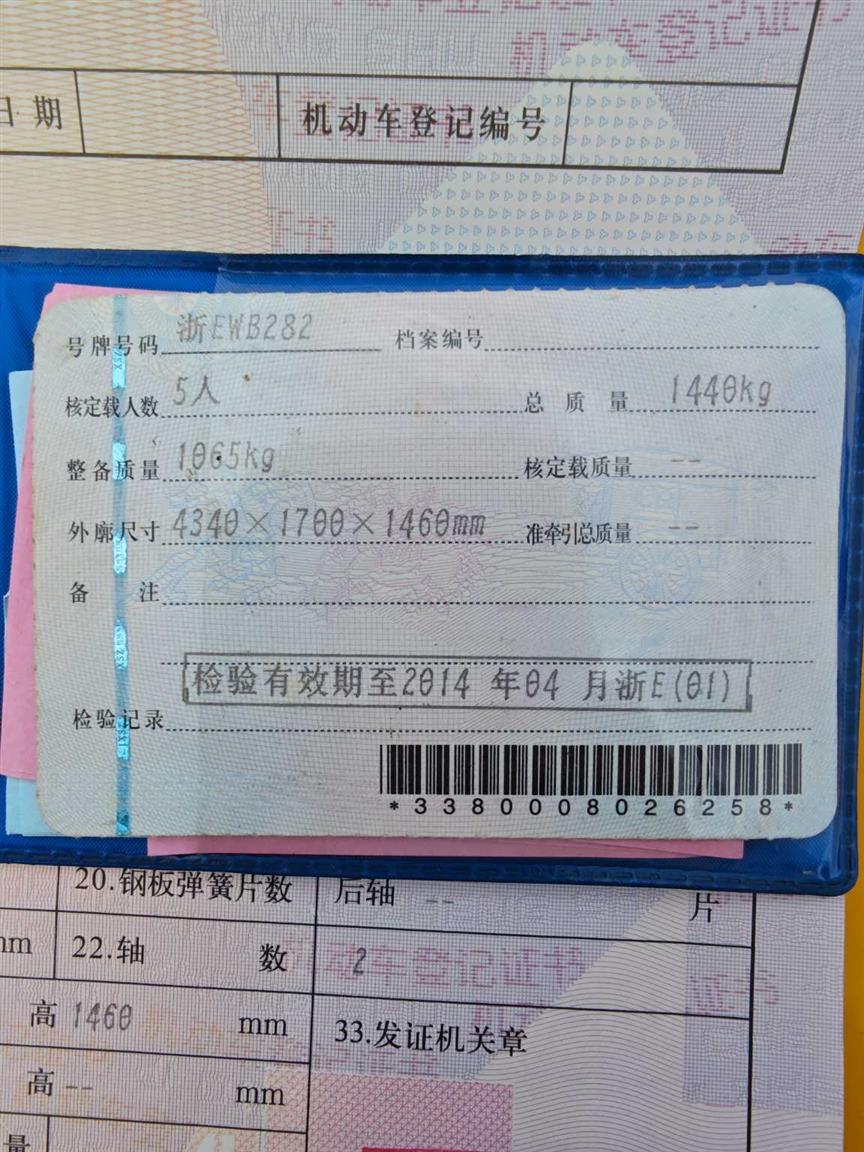 日期 机动车登记编号
号牌号码 浙EWB282 档案编号
核定载人数 5人 总质量 1440kg
整备质量 1065kg 核定载质量 --
外廓尺寸 4340×1700×1460mm 准牵引总质量 --
备注
检验有效期至2014 年04 月浙E(01)
检验记录
*3380008026258*
20.钢板弹簧片数 后轴 -- 片
mm 22.轴数 2
高 1460 mm 33.发证机关章
高 -- mm
量